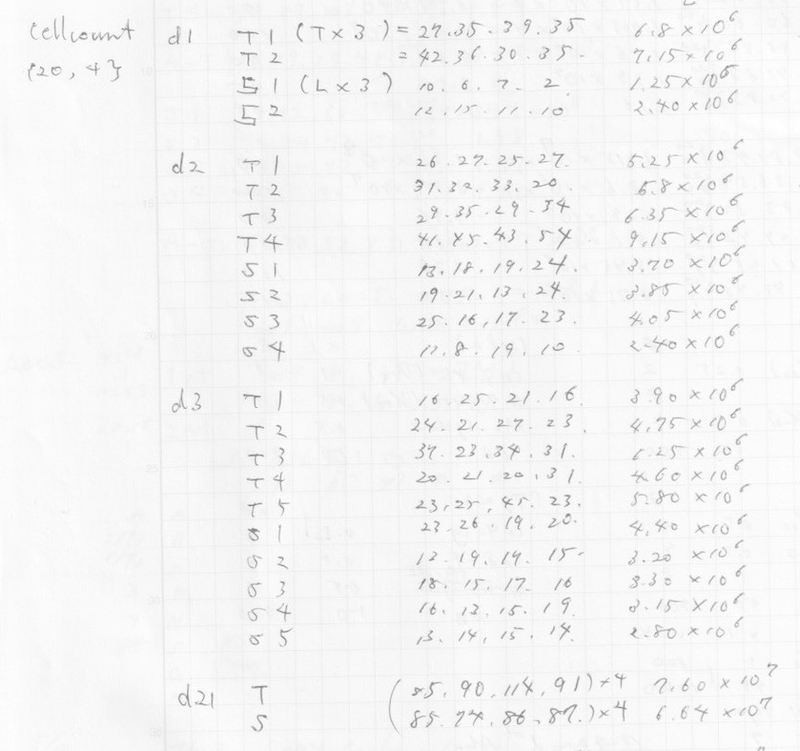 Cellcount d1 T1 (T×3) = 27.35.39.35 6.8×10⁶
{20, 4} T2 = 42.36.30.35. 7.15×10⁶
S1 (L×3) 10. 6. 7. 2 1.25×10⁶
S2 12. 15. 11. 10 2.40×10⁶
d2 T1 26. 27. 25. 27. 5.25×10⁶
T2 31. 32. 33. 20. 5.8×10⁶
T3 29. 35. 29. 34 6.35×10⁶
T4 41. 45. 43. 54 9.15×10⁶
S1 13. 18. 19. 24 3.70×10⁶
S2 19. 21. 13. 24. 3.85×10⁶
S3 25. 16, 17. 23. 4.05×10⁶
S4 11. 8. 19. 10 2.40×10⁶
d3 T1 16. 25. 21. 16 3.90×10⁶
T2 24. 21. 27. 23 4.75×10⁶
T3 37. 23. 34. 31. 6.25×10⁶
T4 20. 21. 20. 31 4.60×10⁶
T5 23, 25, 45. 23. 5.80×10⁶
S1 23. 26. 19. 20. 4.40×10⁶
S2 12. 19. 19. 15. 3.20×10⁶
S3 18. 15. 17. 16 3.30×10⁶
S4 16. 13. 15. 19 3.15×10⁶
S5 13. 14, 15. 14. 2.80×10⁶
d21 T (85, 90, 114, 91)×4 7.60×10⁷
S (85. 74, 86, 87.)×4 6.64×10⁷